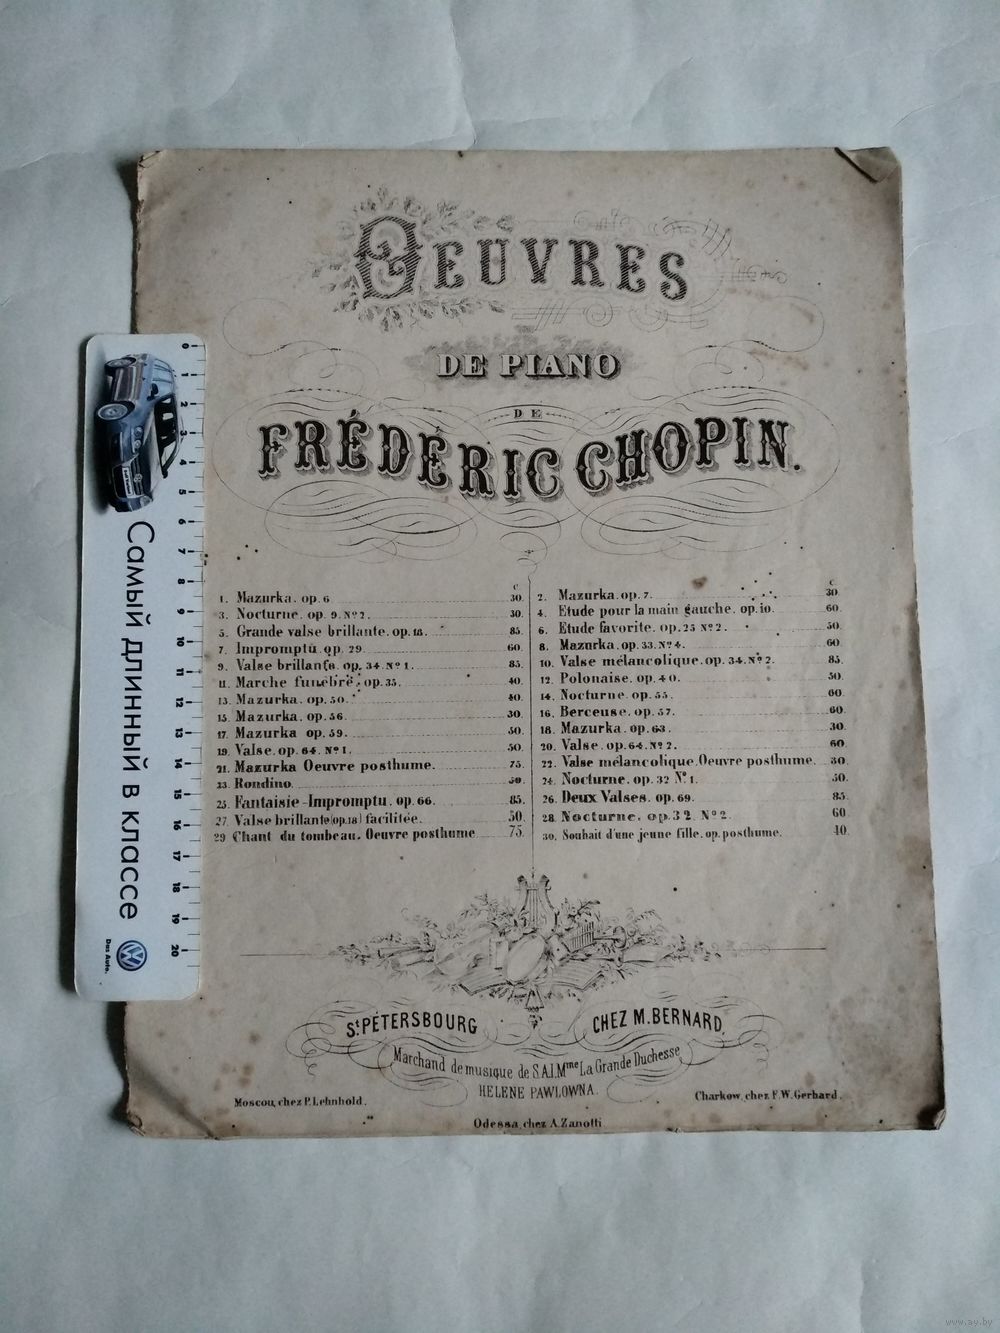 OEUVRES
DE PIANO
DE
FRÉDÉRIC CHOPIN.
c.
1. Mazurka. op. 6 30.
3. Nocturne. op. 9. No 2. 30.
5. Grande valse brillante. op. 18. 85.
7. Impromptu op. 29 60.
9. Valse brillante. op. 34. No 1. 85.
11. Marche funébre. op. 35. 40.
13. Mazurka. op. 50. 40.
15. Mazurka. op. 56. 50.
17. Mazurka op. 59. 50.
19. Valse. op. 64. No 1. 50.
21. Mazurka Oeuvre posthume. 75.
23. Rondino. 50.
25. Fantaisie-Impromptu. op. 66. 85.
27. Valse brillante (op. 18) facilitée. 50.
29 Chant du tombeau. Oeuvre posthume 75.
c.
2. Mazurka. op. 7. 30.
4. Etude pour la main gauche. op. 10. 60.
6. Etude favorite. op. 25 No 2. 50.
8. Mazurka. op. 33. No 4. 60.
10. Valse mélancolique. op. 34. No 2. 85.
12. Polonaise. op. 40. 50.
14. Nocturne. op. 55. 60.
16. Berceuse. op. 57. 60.
18. Mazurka. op. 63. 50.
20. Valse. op. 64. No 2. 60
22. Valse mélancolique. Oeuvre posthume. 30.
24. Nocturne. op. 32 No 1. 50.
26. Deux Valses. op. 69. 85.
28. Nocturne. op. 32 No 2. 60
30. Souhait d'une jeune fille. op. posthume. 40.
St. PÉTERSBOURG CHEZ M. BERNARD,
Marchand de musique de S.A.I. Mme La Grande Duchesse
HELENE PAWLOWNA.
Moscou, chez P. Lehnhold. Charkow, chez F. W. Gerhard.
Odessa, chez A. Zanotti
0 1 2 3 4 5 6 7 8 9 10 11 12 13 14 15 16 17 18 19 20
Самый длинный в классе
Das Auto.
www.ay.by